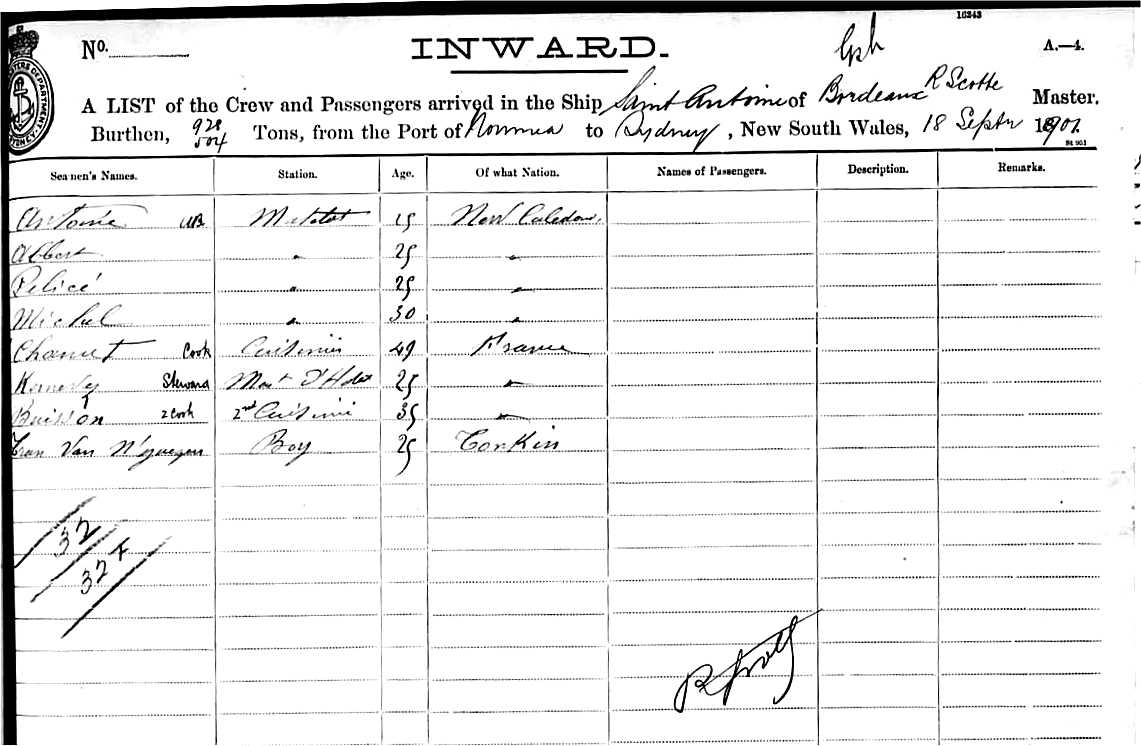 16343
No. INWARD. A.—4.
A LIST of the Crew and Passengers arrived in the Ship Saint Antoine of Bordeaux R Scotte Master,
Burthen, 928/504 Tons, from the Port of Noumea to Sydney, New South Wales, 18 Septr 1901.
St 961
Seamen's Names. Station. Age. Of what Nation. Names of Passengers. Description. Remarks.
Antoine AB Matelot 25 New Caledon.
Albert " 25 "
Pelicé " 25 "
Michel " 30 "
Chamet Cook Cuisinier 49 France
Steward Mait d'Hotel 25 "
Buisson 2 Cook 2nd Cuisinier 35 "
Tran Van N'guyen Boy 25 Tonkin
32
32 F